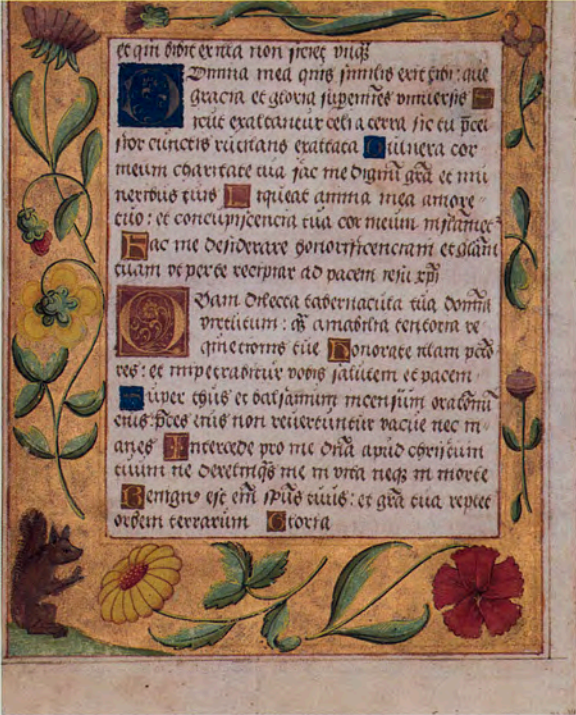 et qui bibit ex illa non sitiet vnq̃
Domina mea quis similis erit tibi: que
gracia et gloria superemines vniuersis
icut exaltantur celi a terra sic tu p̃cel
sior cunctis et nimis exaltata Uulnera cor
meum charitate tua fac me dignũ grã et mu
neribus tuis Liqueat anima mea amore
tuo: et concupiscencia tua cor meum inflamet
Fac me desiderare honorificenciam et glãm
tuam vt per te recipiar ad pacem iesu xp̃i
Quam dilecta tabernacula tua domĩa
virtutum: q̃ amabilia tentoria re
quietionis tue Honorate illam pctõ
res: et impetrabitur vobis salutem et pacem
Super thus et balsamum incensum orationũ
eius p̃ces eius non reuertuntur vacue nec in
anes Intercede pro me dñã apud christum
tuum ne derelinq̃s me in vita neq̃ in morte
Benignus est em̃ sp̃us tuus: et grã tua replet
orbem terrarum Gloria